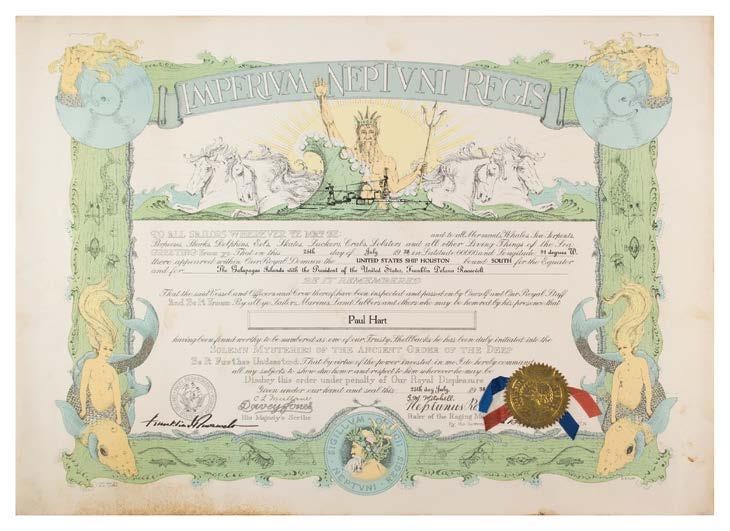 IMPERIVM NEPTVNI REGIS
TO ALL SAILORS WHEREVER YE MAY BE: and to all Mermaids, Whales, Sea Serpents,
Porpoises, Sharks, Dolphins, Eels, Skates, Suckers, Crabs, Lobsters and all other Living Things of the Sea,
GREETING: Know ye: That on this 25th day of July 19 38 in Latitude 00000 and Longitude 91 degrees W.
there appeared within Our Royal Domain the UNITED STATES SHIP HOUSTON bound SOUTH for the Equator
and for The Galapagos Islands with the President of the United States, Franklin Delano Roosevelt
BE IT REMEMBERED
That the said Vessel and Officers and Crew thereof, have been inspected and passed on by Ourself and Our Royal Staff
And Be It Known: By all ye Sailors, Marines, Land Lubbers and others who may be honored by his presence that
Paul Hart
having been found worthy to be numbered as one of our Trusty Shellbacks he has been duly initiated into the
SOLEMN MYSTERIES OF THE ANCIENT ORDER OF THE DEEP
Be It Further Understood: That by virtue of the power invested in me I do hereby command
all my subjects to show due honor and respect to him wherever he may be
Disobey this order under penalty of Our Royal Displeasure
Given under our hand and seal this 25th day July 19 38
Davey Jones
His Majesty's Scribe
Neptunus
Ruler of the Raging
Franklin D Roosevelt
SIGILLVM NEPTVNI REGIS